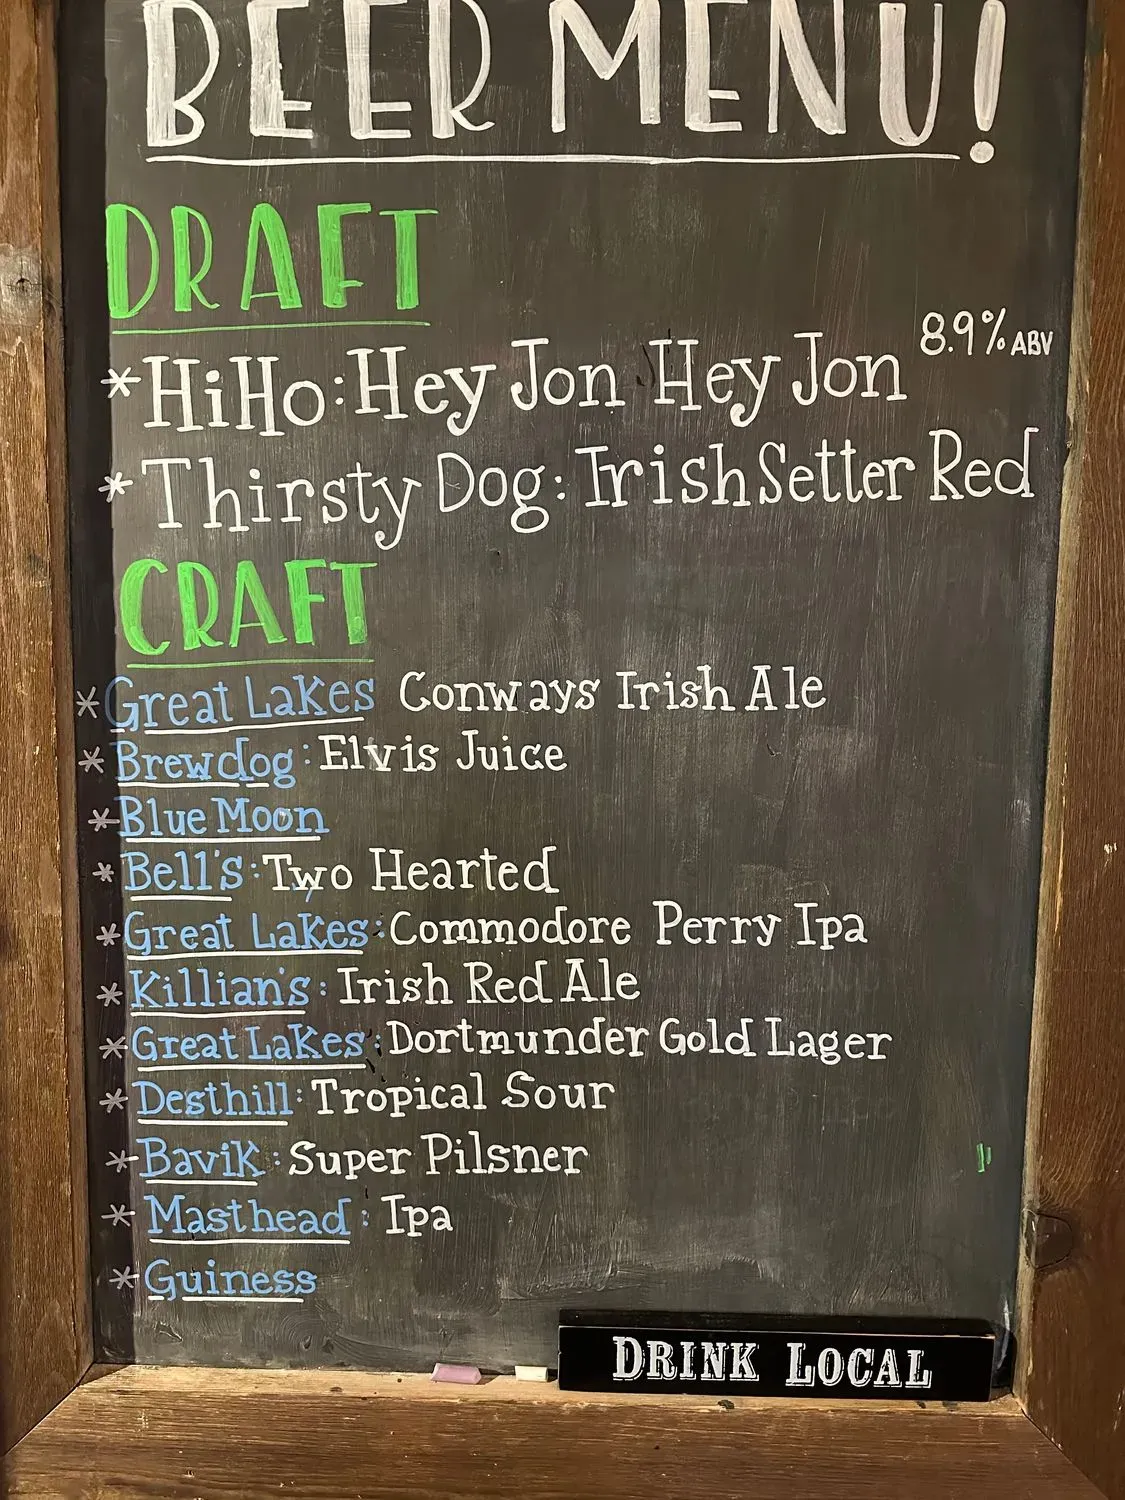 BEER MENU!
DRAFT
* HiHo: Hey Jon Hey Jon 8.9% ABV
* Thirsty Dog: Irish Setter Red
CRAFT
* Great Lakes Conways Irish Ale
* Brewdog: Elvis Juice
* Blue Moon
* Bell's: Two Hearted
* Great Lakes: Commodore Perry Ipa
* Killian's: Irish Red Ale
* Great Lakes: Dortmunder Gold Lager
* Desthill: Tropical Sour
* Bavik: Super Pilsner
* Masthead: Ipa
* Guiness
DRINK LOCAL